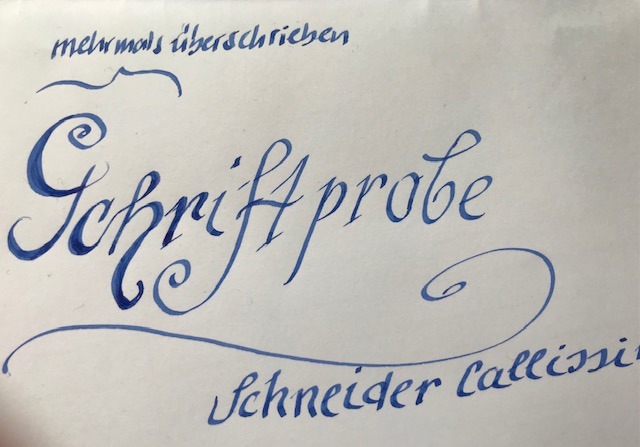 mehrmals überschrieben
Schriftprobe
Schneider Callissi